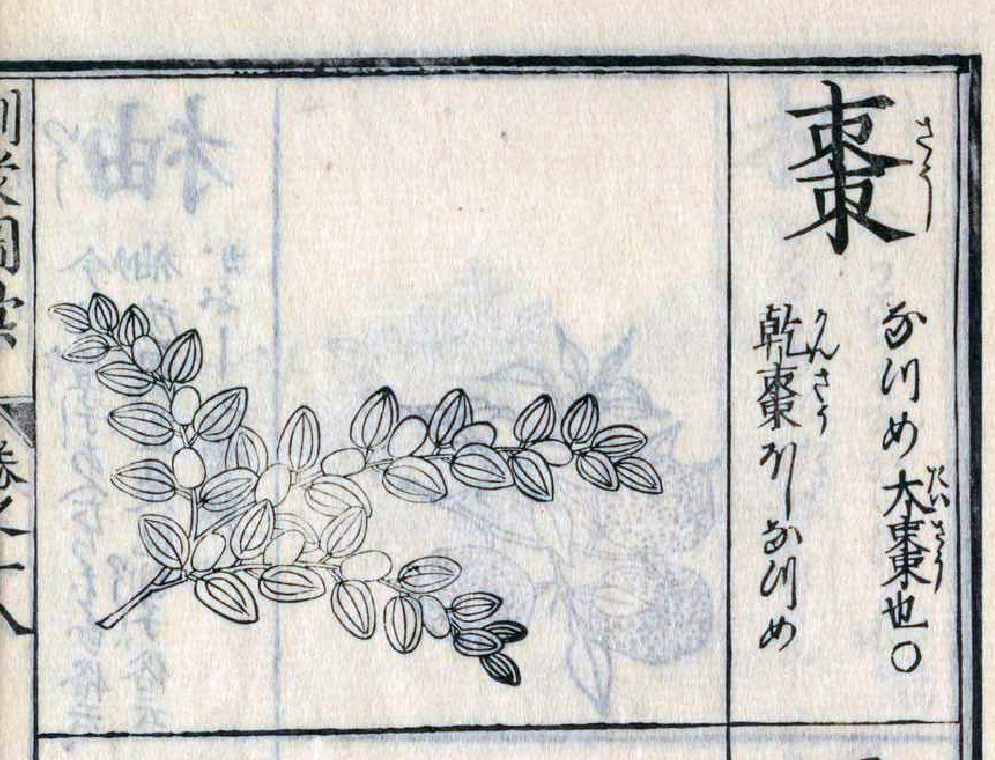 棗
さう
なつめ大棗也○
たいさう
乾棗ほしなつめ
かんさう
訓蒙圖彙
卷之十八